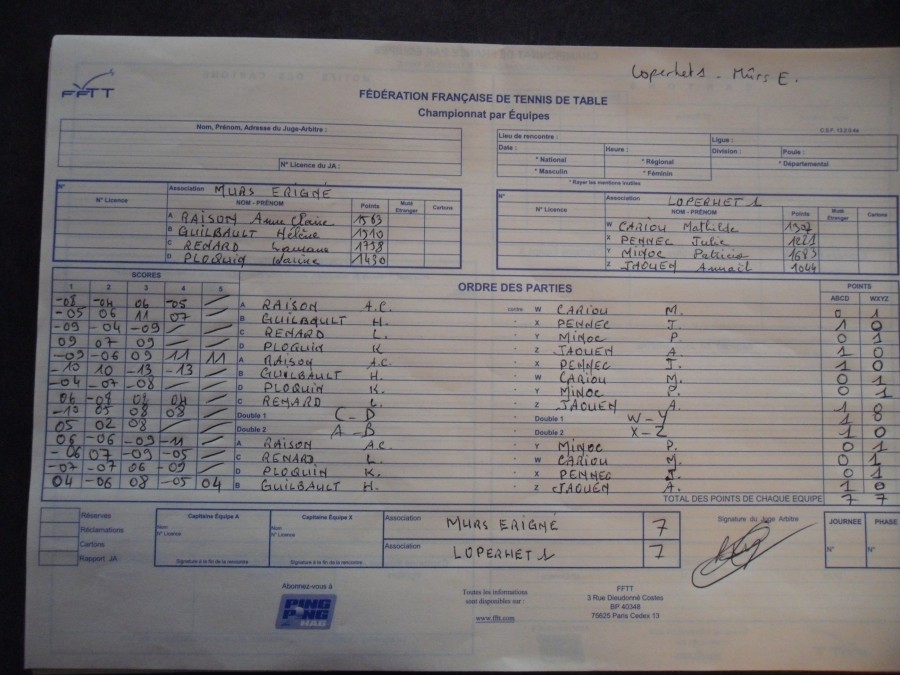 Loperhet 1 - Mûrs E.
FFTT
FÉDÉRATION FRANÇAISE DE TENNIS DE TABLE
Championnat par Équipes
Nom, Prénom, Adresse du Juge-Arbitre :
N° Licence du JA :
Lieu de rencontre : Ligue :
Date : Heure : Division : Poule :
* National * Régional * Départemental
* Masculin * Féminin
* Rayer les mentions inutiles
N° Association MURS ERIGNÉ
N° Licence NOM - PRÉNOM Points Muté Etranger Cartons
A RAISON Anne Claire 1563
B GUILBAULT Hélène 1310
C RENARD 1738
D PLOQUIN Karine 1430
N° Association LOPERHET 1
N° Licence NOM - PRÉNOM Points Muté Etranger Cartons
W CARIOU Mathilde 1307
X PENNEC Julie 1221
Y MINOC Patricia 1683
Z JAOUEN Annaïl 1044
SCORES ORDRE DES PARTIES POINTS
1 2 3 4 5 ABCD WXYZ
-08 -04 06 -05 A RAISON A.C. contre W CARIOU M. 0 1
-05 06 11 07 B GUILBAULT H. X PENNEC J. 1 0
-09 -04 -09 C RENARD L. Y MINOC P. 0 1
09 07 09 D PLOQUIN K Z JAOUEN A. 1 0
-09 -06 09 11 11 A RAISON A.C. X PENNEC J. 1 0
-10 10 -13 -13 B GUILBAULT H. W CARIOU M. 0 1
-04 -07 -08 D PLOQUIN K. Y MINOC P. 0 1
06 -08 08 04 C RENARD L. Z JAOUEN A. 1 0
-10 05 08 08 Double 1 C-D Double 1 W-Y 1 0
05 02 08 Double 2 A-B Double 2 X-Z 1 0
06 -06 -09 -11 A RAISON A.C Y MINOC P. 0 1
-06 07 -09 -05 C RENARD L. W CARIOU M. 0 1
-07 -07 06 -09 D PLOQUIN K. X PENNEC J. 0 1
04 -06 08 -05 04 B GUILBAULT H. Z JAOUEN A. 1 0
TOTAL DES POINTS DE CHAQUE EQUIPE 7 7
Réserves
Réclamations
Cartons
Rapport JA
Capitaine Équipe A
Nom
N° Licence
Signature à la fin de la rencontre
Capitaine Équipe X
Nom
N° Licence
Signature à la fin de la rencontre
Association MURS ERIGNÉ 7
Association LOPERHET 1 7
Signature du Juge Arbitre
JOURNEE PHASE
N° N°
Abonnez-vous à
PING PONG MAG
Toutes les informations
sont disponibles sur :
www.fftt.com
FFTT
3 Rue Dieudonné Costes
BP 40348
75625 Paris Cedex 13